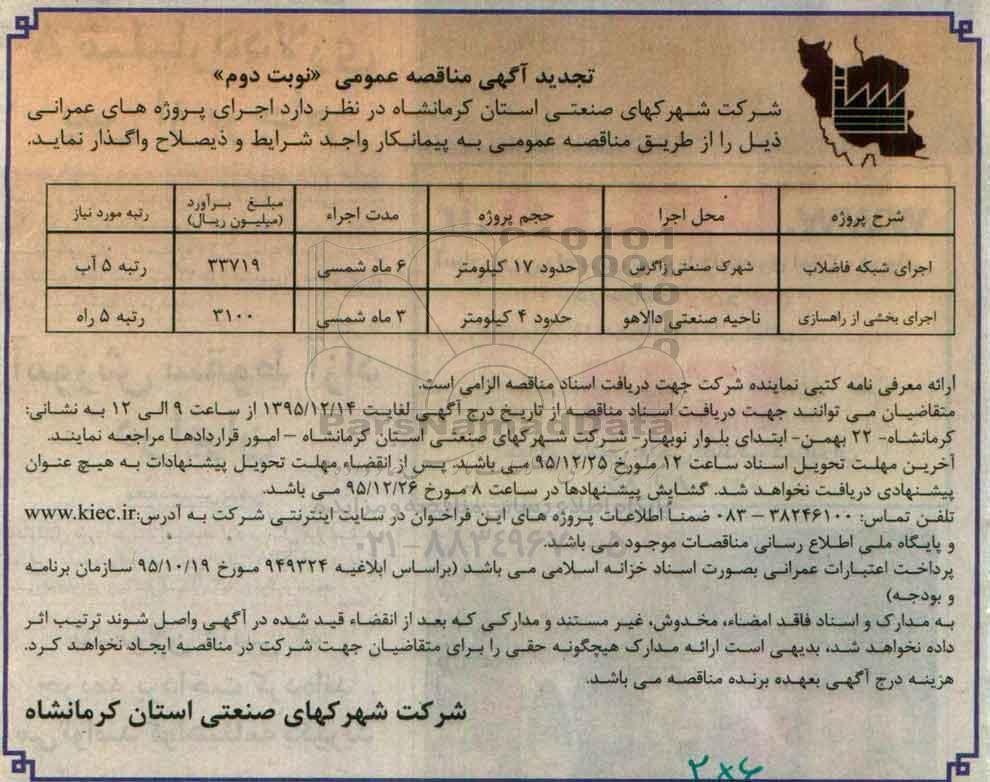 تجدید آگهی مناقصه عمومی «نوبت دوم»
شرکت شهرکهای صنعتی استان کرمانشاه در نظر دارد اجرای پروژه های عمرانی
ذیل را از طریق مناقصه عمومی به پیمانکار واجد شرایط و ذیصلاح واگذار نماید.
شرح پروژه محل اجرا حجم پروژه مدت اجراء مبلغ برآورد (میلیون ریال) رتبه مورد نیاز
اجرای شبکه فاضلاب شهرک صنعتی زاگرس حدود ۱۷ کیلومتر ۶ ماه شمسی ۳۳۷۱۹ رتبه ۵ آب
اجرای بخشی از راهسازی ناحیه صنعتی دالاهو حدود ۴ کیلومتر ۳ ماه شمسی ۳۱۰۰ رتبه ۵ راه
ارائه معرفی نامه کتبی نماینده شرکت جهت دریافت اسناد مناقصه الزامی است.
متقاضیان می توانند جهت دریافت اسناد مناقصه از تاریخ درج آگهی لغایت ۱۳۹۵/۱۲/۱۴ از ساعت ۹ الی ۱۲ به نشانی:
کرمانشاه- ۲۲ بهمن- ابتدای بلوار نوبهار- شرکت شهرکهای صنعتی استان کرمانشاه – امور قراردادها مراجعه نمایند.
آخرین مهلت تحویل اسناد ساعت ۱۲ مورخ ۹۵/۱۲/۲۵ می باشد. پس از انقضاء مهلت تحویل پیشنهادات به هیچ عنوان
پیشنهادی دریافت نخواهد شد. گشایش پیشنهادها در ساعت ۸ مورخ ۹۵/۱۲/۲۶ می باشد.
تلفن تماس: ۳۸۲۴۶۱۰۰ – ۰۸۳ ضمناً اطلاعات پروژه های این فراخوان در سایت اینترنتی شرکت به آدرس:www.kiec.ir
و پایگاه ملی اطلاع رسانی مناقصات موجود می باشد.
پرداخت اعتبارات عمرانی بصورت اسناد خزانه اسلامی می باشد (براساس ابلاغیه ۹۴۹۳۲۴ مورخ ۹۵/۱۰/۱۹ سازمان برنامه
و بودجه)
به مدارک و اسناد فاقد امضاء، مخدوش، غیر مستند و مدارکی که بعد از انقضاء قید شده در آگهی واصل شوند ترتیب اثر
داده نخواهد شد، بدیهی است ارائه مدارک هیچگونه حقی را برای متقاضیان جهت شرکت در مناقصه ایجاد نخواهد کرد.
هزینه درج آگهی بعهده برنده مناقصه می باشد.
شرکت شهرکهای صنعتی استان کرمانشاه
ParsNamadData
۲×۶